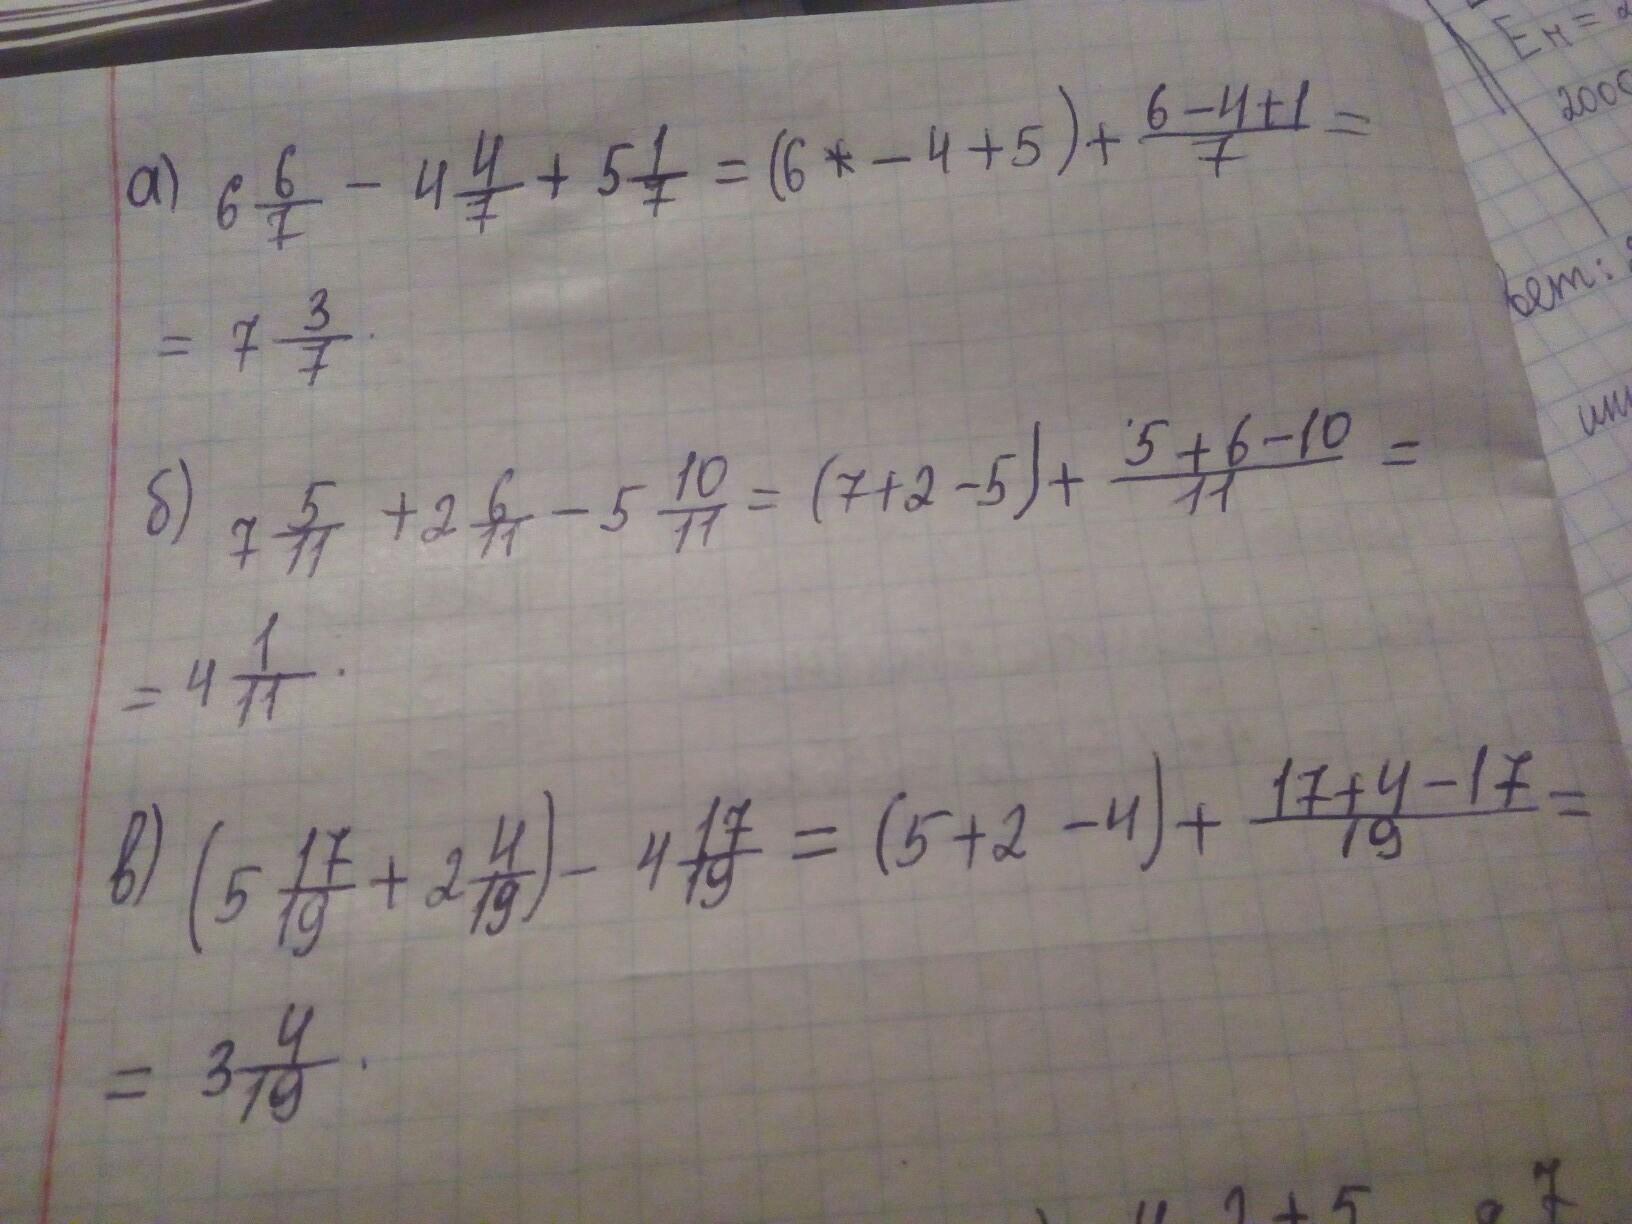 а) 6 6/7 − 4 4/7 + 5 1/7 = (6 * − 4 + 5) + (6−4+1)/7 =
= 7 3/7.
б) 7 5/11 + 2 6/11 − 5 10/11 = (7+2−5) + (5+6−10)/11 =
= 4 1/11.
в) (5 17/19 + 2 4/19) − 4 17/19 = (5+2−4) + (17+4−17)/19 =
= 3 4/19.
Ен =